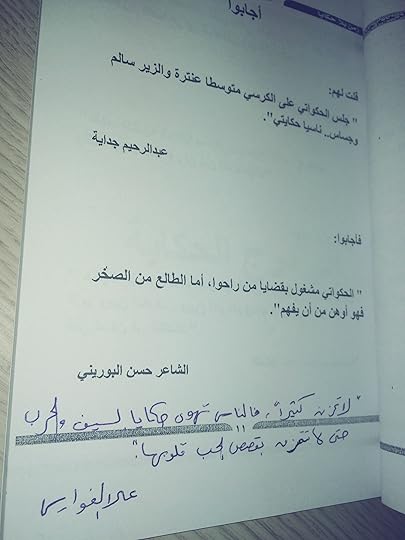 أجابوا
قلت لهم:
" جلس الحكواتي على الكرسي متوسطا عنترة والزير سالم
وجساس.. ناسيا حكايتي".
عبدالرحيم جداية
فأجابوا:
" الحكواتي مشغول بقضايا من راحوا، أما الطالع من الصخر
فهو أوهن من أن يفهم".
الشاعر حسن البوريني
" لا تحزن كثيراً، فالناس تهوى حكايا السيف والحرب
١١
حتى لا تحزن بقصص الحب قلوبها"
علا الفوارس